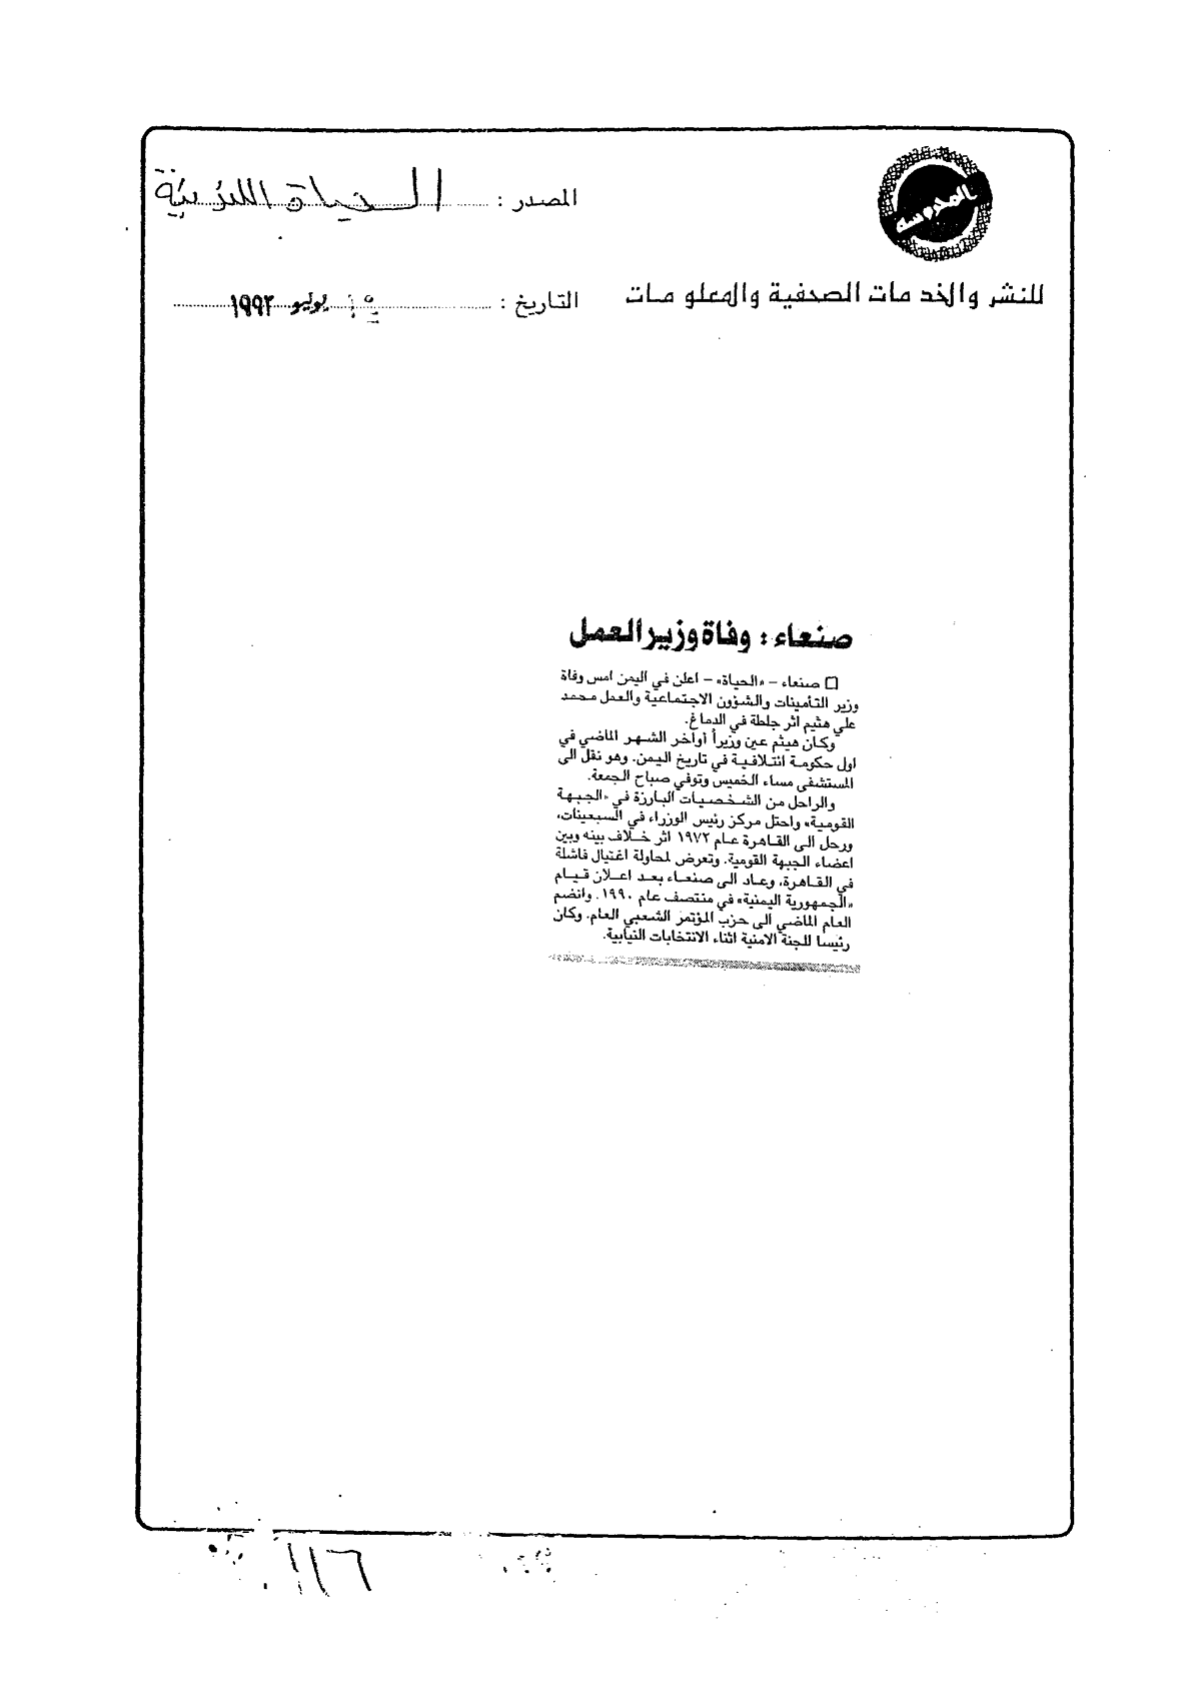 المحروسة
المصدر : الحياة اللندنية
للنشر والخدمات الصحفية والمعلومات
التاريخ : يوليو ١٩٩٣
صنعاء : وفاة وزير العمل
□ صنعاء – «الحياة» – اعلن في اليمن امس وفاة
وزير التأمينات والشؤون الاجتماعية والعمل محمد
علي هثيم اثر جلطة في الدماغ.
وكان هيثم عين وزيراً أواخر الشهر الماضي في
اول حكومة ائتلافية في تاريخ اليمن. وهو نقل الى
المستشفى مساء الخميس وتوفي صباح الجمعة.
والراحل من الشخصيات البارزة في «الجبهة
القومية» واحتل مركز رئيس الوزراء في السبعينات،
ورحل الى القاهرة عام ١٩٧٢ اثر خلاف بينه وبين
اعضاء الجبهة القومية. وتعرض لمحاولة اغتيال فاشلة
في القاهرة، وعاد الى صنعاء بعد اعلان قيام
«الجمهورية اليمنية» في منتصف عام ١٩٩٠. وانضم
العام الماضي الى حزب المؤتمر الشعبي العام. وكان
رئيسا للجنة الامنية اثناء الانتخابات النيابية.